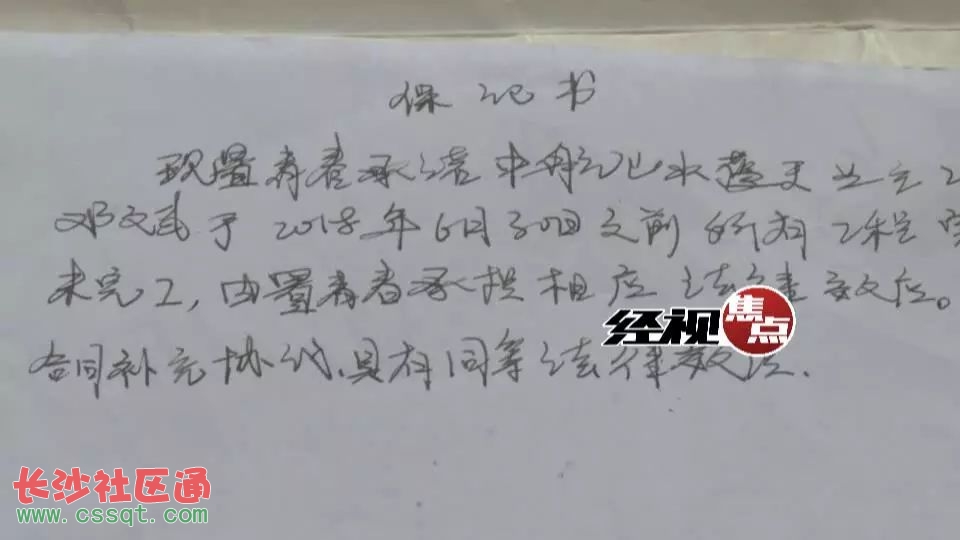 保记书
现置青春承诺中航山水蓬天业主
邓文武于2018年6月30日之前所有工程
未完工，由置青春承担相应法律效应。
合同补充协议、具有同等法律效应.
经视焦点
长沙社区通
www.cssqt.com